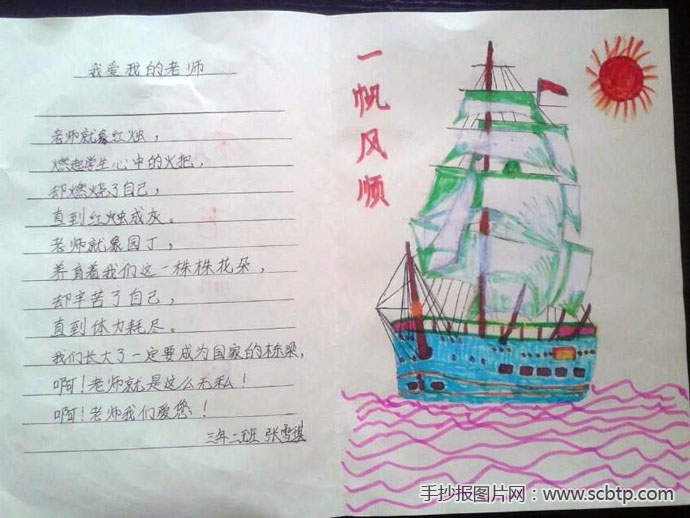 我爱我的老师
老师就象红烛，
燃起学生心中的火把，
却燃烧了自己，
直到红烛成灰。
老师就象园丁，
养育着我们这一株株花朵，
却辛苦了自己，
直到体力耗尽。
我们长大了一定要成为国家的栋梁，
啊！老师就是这么无私！
啊！老师我们爱您！
三年二班 张雪琪
一帆风顺
手抄报图片网：www.scbtp.com